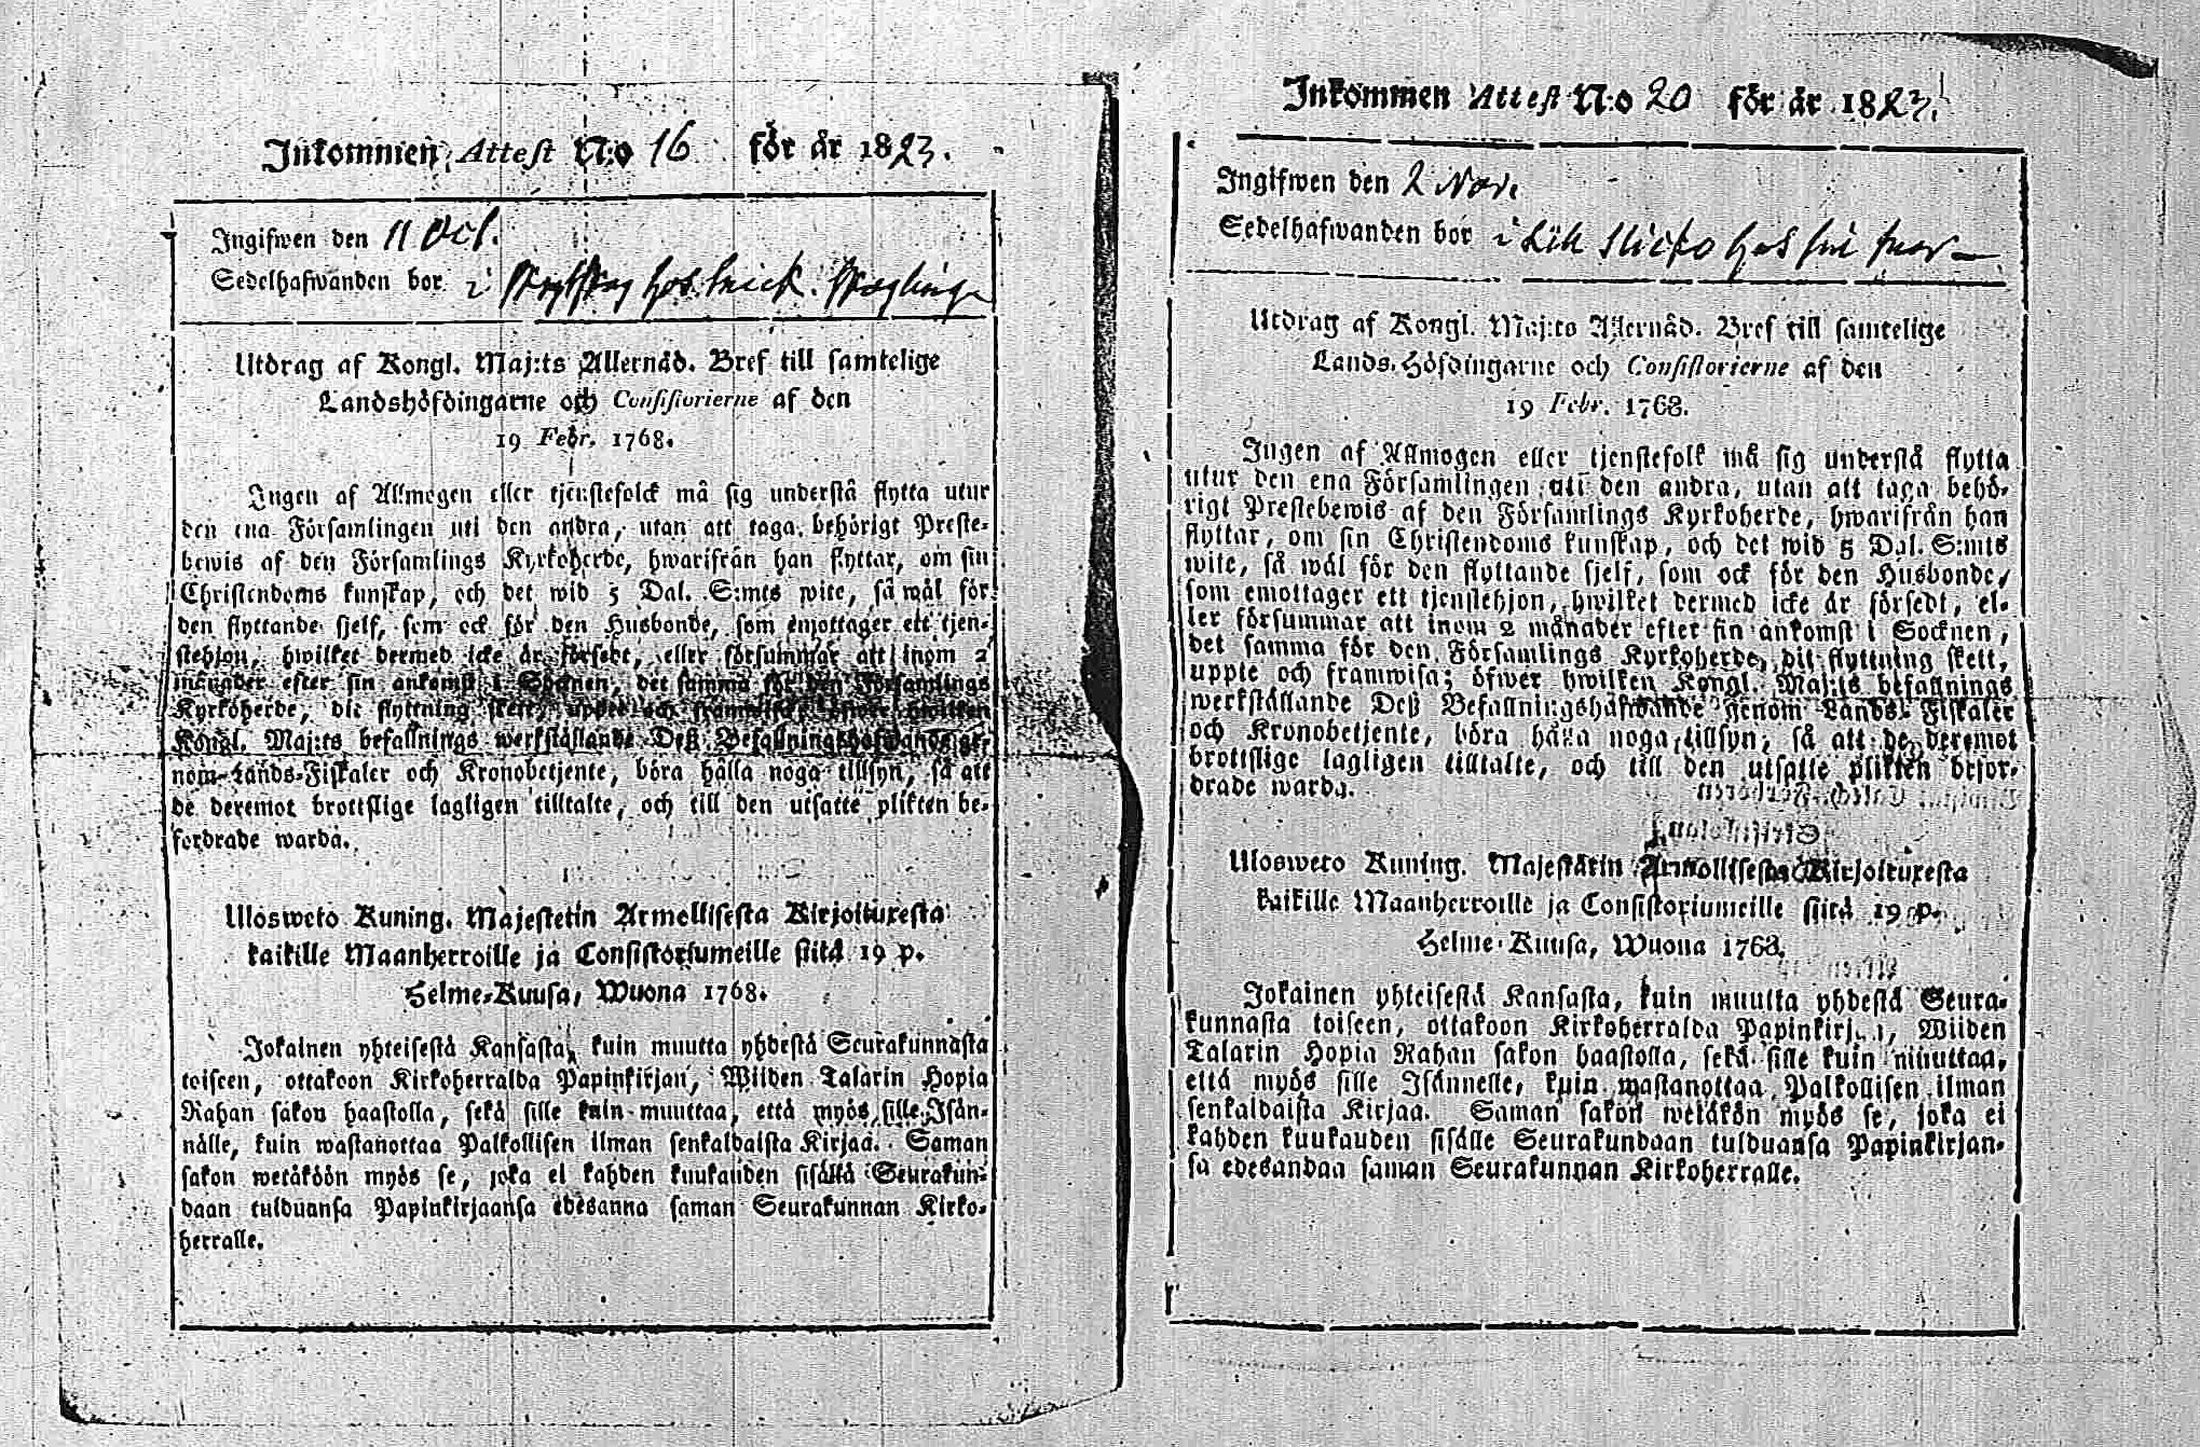 Inkommen Attest N:o 16 för år 1823.
Ingifwen den 11 Oct.
Sedelhafwanden bor i hos
Utdrag af Kongl. Maj:ts Allernåd. Bref till samtelige
Landshöfdingarne och Consistorierne af den
19 Febr. 1768.
Ingen af Allmogen eller tjenstefolck må sig understå flytta utur
den ena Församlingen uti den andra, utan att taga behörigt Preste-
bewis af den Församlings Kyrkoherde, hwarifrån han flyttar, om sin
Christendoms kunskap, och det wid 5 Dal. S:mts wite, så wäl för
den flyttande sjelf, som ock för den Husbonde, som emottager ett tjen-
stehjon, hwilket dermed icke är försedt, eller försummar att inom 2
månader efter sin ankomst i Socknen, det samma för den Församlings
Kyrkoherde, dit flyttning skett, uppte och framwisa; öfwer hwilken
Kongl. Maj:ts befallnings werkställande Deß Befallningshafwande ge-
nom Lands-Fiskaler och Kronobetjente, böra hålla noga tillsyn, så att
de deremot brottslige lagligen tilltalte, och till den utsatte plikten be-
fordrade warda.
Ulosweto Kuning. Majestetin Armollisesta Kirjoituxesta
kaikille Maanherroille ja Consistoriumeille siitä 19 p.
Helme-Kuusa, Wuona 1768.
Jokainen yhteisestä Kansasta, kuin muutta yhdestä Seurakunnasta
toiseen, ottakoon Kirkoherralda Papinkirjan, Wiiden Talarin Hopia
Rahan sakon haastolla, sekä sille kuin muuttaa, että myös sille Isän-
nälle, kuin wastanottaa Palkollisen ilman senkaldaista Kirjaa. Saman
sakon wetäköön myös se, joka ei kahden kuukauden sisällä Seurakun-
daan tulduansa Papinkirjaansa edesanna saman Seurakunnan Kirko-
herralle.
Inkommen Attest N:o 20 för år 1823.
Ingifwen den 2 Nov.
Sedelhafwanden bor i hos sin
Utdrag af Kongl. Maj:ts Allernåd. Bref till samtelige
Lands-Höfdingarne och Consistorierne af den
19 Febr. 1768.
Ingen af Allmogen eller tjenstefolk må sig understå flytta
utur den ena Församlingen uti den andra, utan att taga behö-
rigt Prestebewis af den Församlings Kyrkoherde, hwarifrån han
flyttar, om sin Christendoms kunskap, och det wid 5 Dal. S:mts
wite, så wäl för den flyttande sjelf, som ock för den Husbonde,
som emottager ett tjenstehjon, hwilket dermed icke är försedt, el-
ler försummar att inom 2 månader efter sin ankomst i Socknen,
det samma för den Församlings Kyrkoherde, dit flyttning skett,
uppte och framwisa; öfwer hwilken Kongl. Maj:ts befallnings
werkställande Deß Befallningshafwande genom Lands-Fiskaler
och Kronobetjente, böra hålla noga tillsyn, så att de deremot
brottslige lagligen tilltalte, och till den utsatte plikten befor-
drade warda.
Ulosweto Kuning. Majestätin Armollisesta Kirjoituxesta
kaikille Maanherroille ja Consistoriumeille siitä 19 p.
Helme-Kuusa, Wuona 1768.
Jokainen yhteisestä Kansasta, kuin muutta yhdestä Seura-
kunnasta toiseen, ottakoon Kirkoherralda Wiiden
Talarin Hopia Rahan sakon haastolla, sekä sille kuin muuttaa,
että myös sille Isännelle, kuin wastanottaa Palkollisen ilman
senkaldaista Kirjaa. Saman sakon wetäkön myös se, joka ei
kahden kuukauden sisälle Seurakundaan tulduansa Papinkirjan-
sa edesandaa saman Seurakunnan Kirkoherralle.